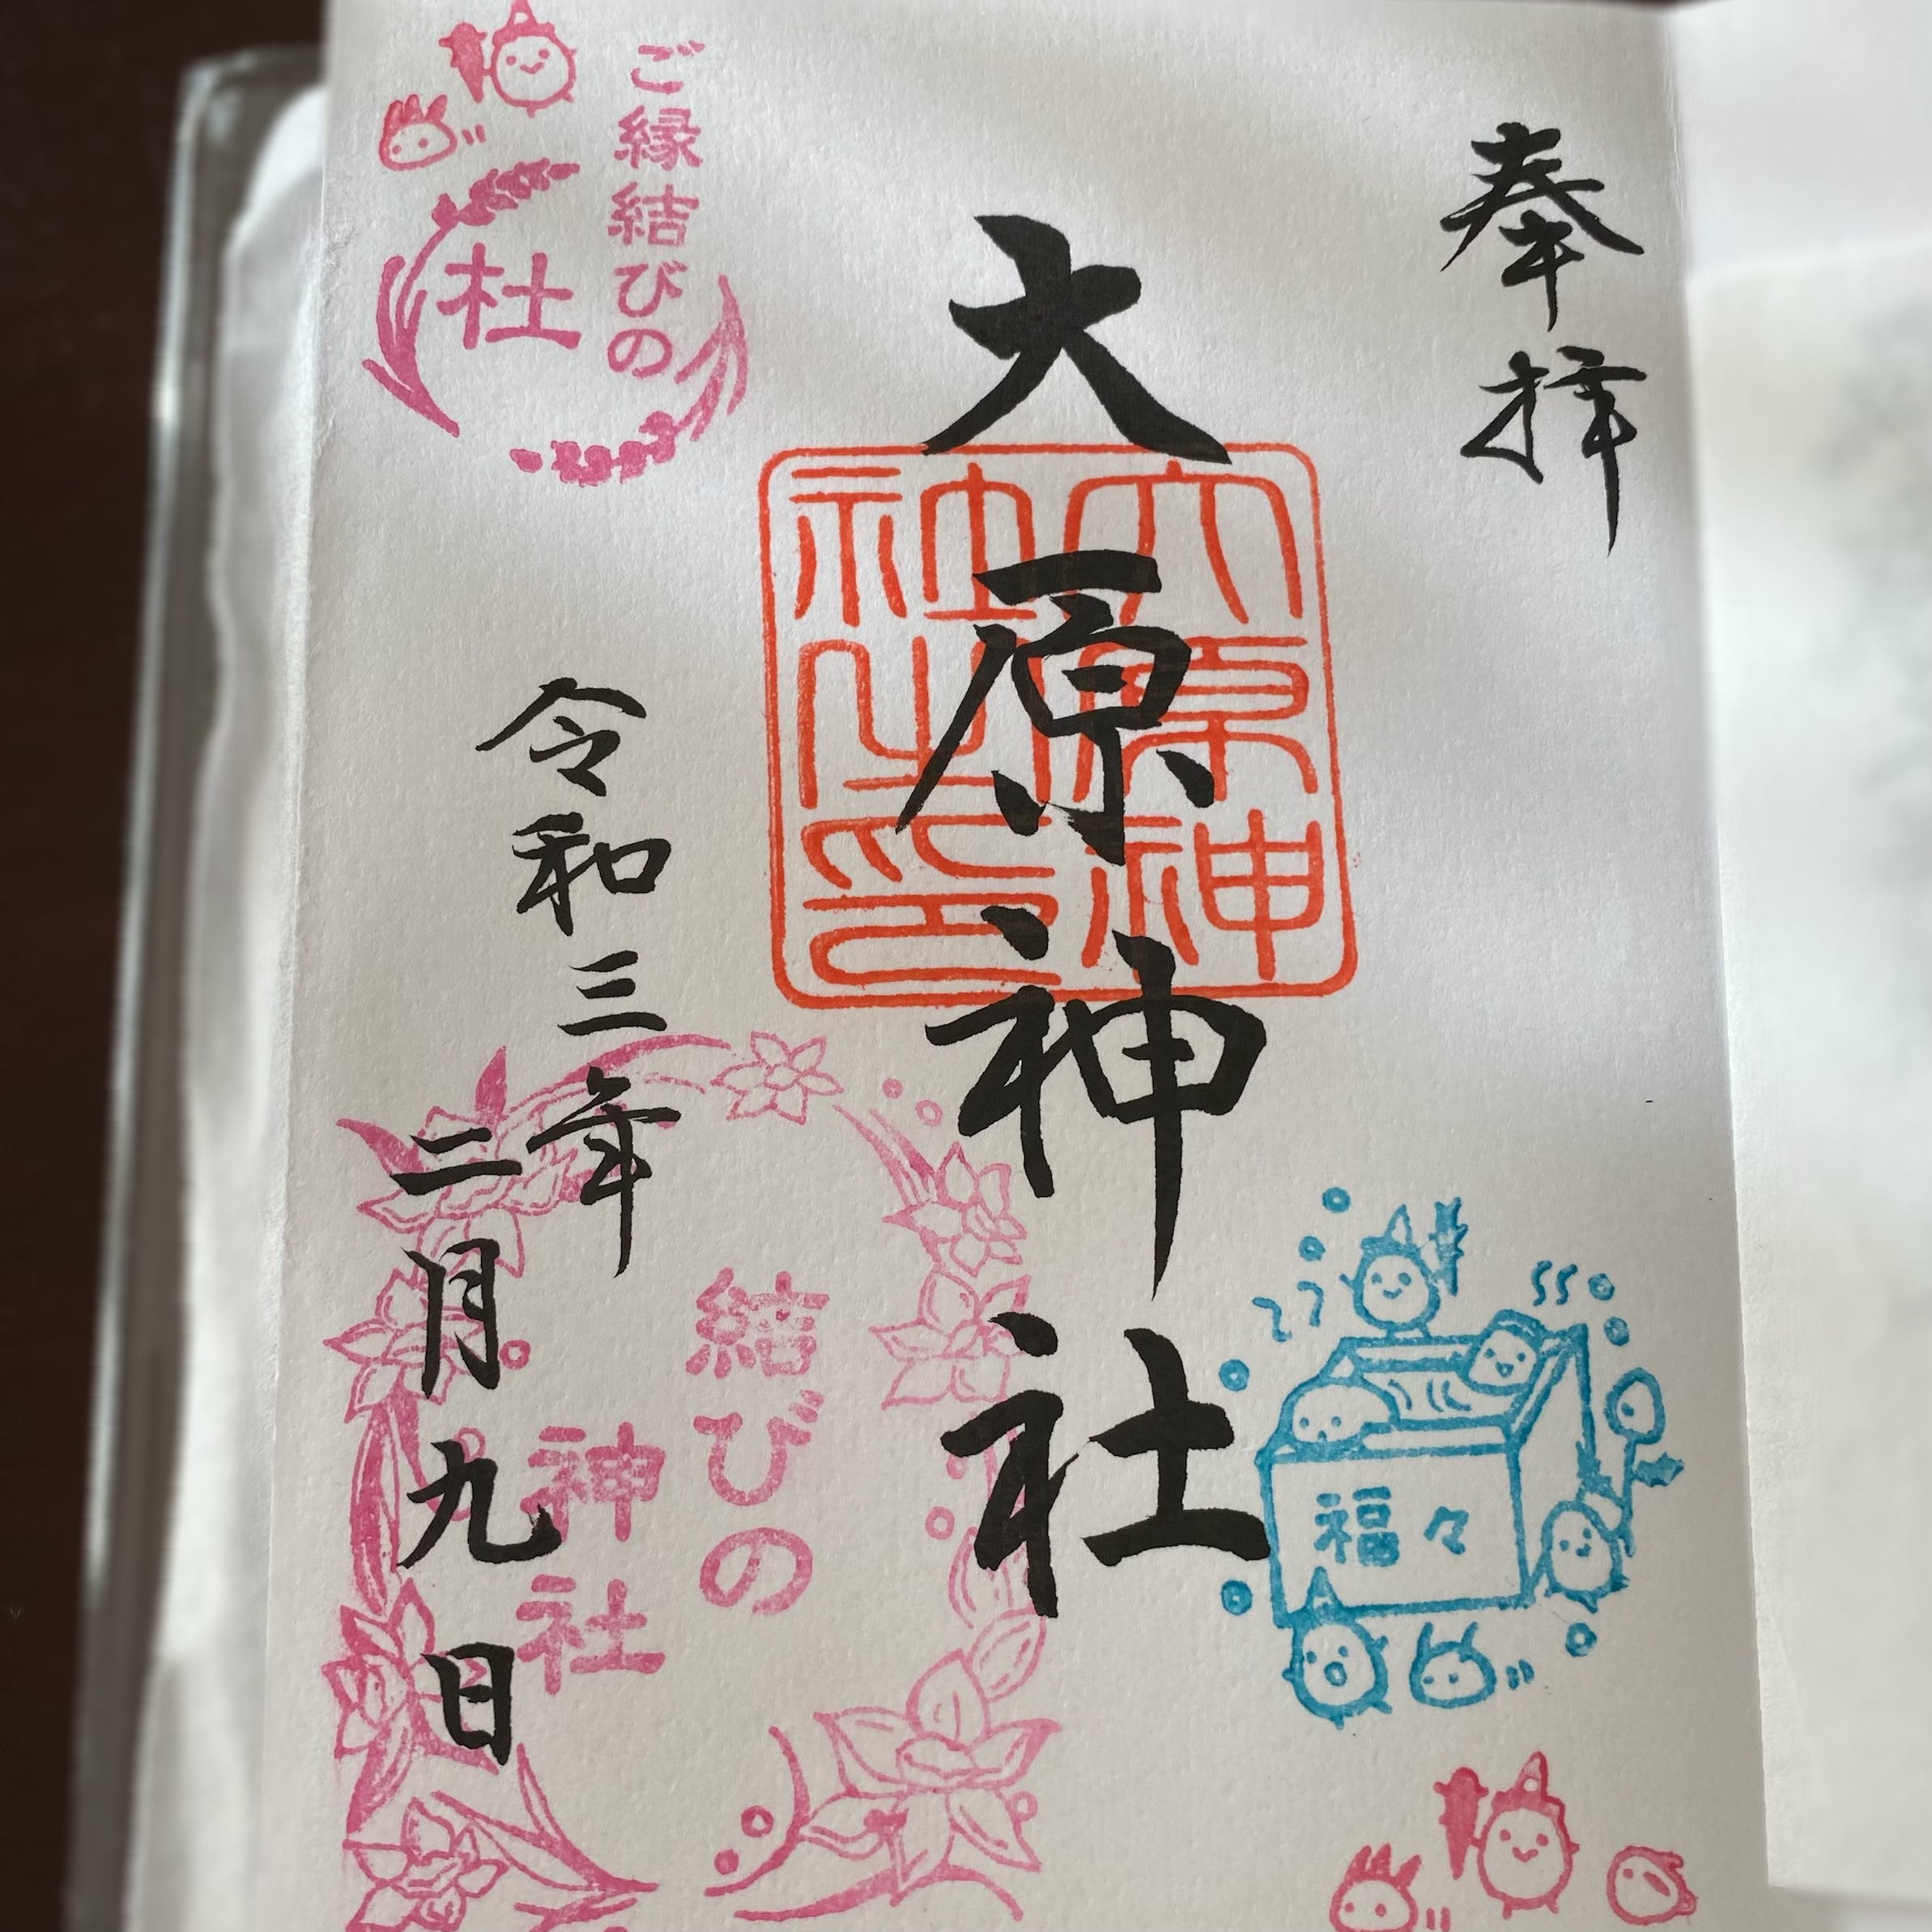 奉拝
大原神社
大原神社之印
令和三年
二月九日
ご縁結びの
杜
結びの
神社
福々